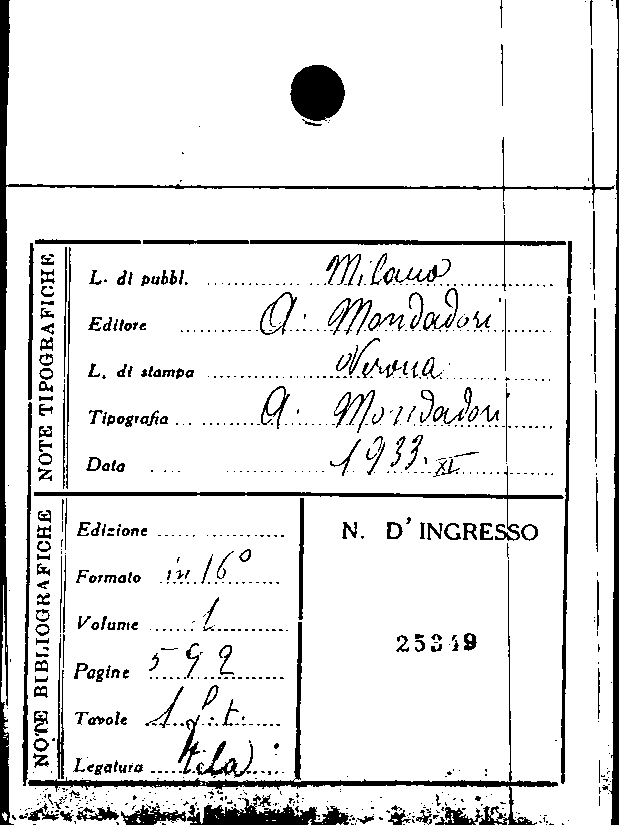 NOTE TIPOGRAFICHE
L. di pubbl. Milano
Editore A. Mondadori
L. di stampa Verona
Tipografia A. Mondadori
Data 1933. XI
NOTE BIBLIOGRAFICHE
Edizione
Formato in 16º
Volume 1
Pagine 592
Tavole 1 f. t.
Legatura tela
N. D'INGRESSO
25349